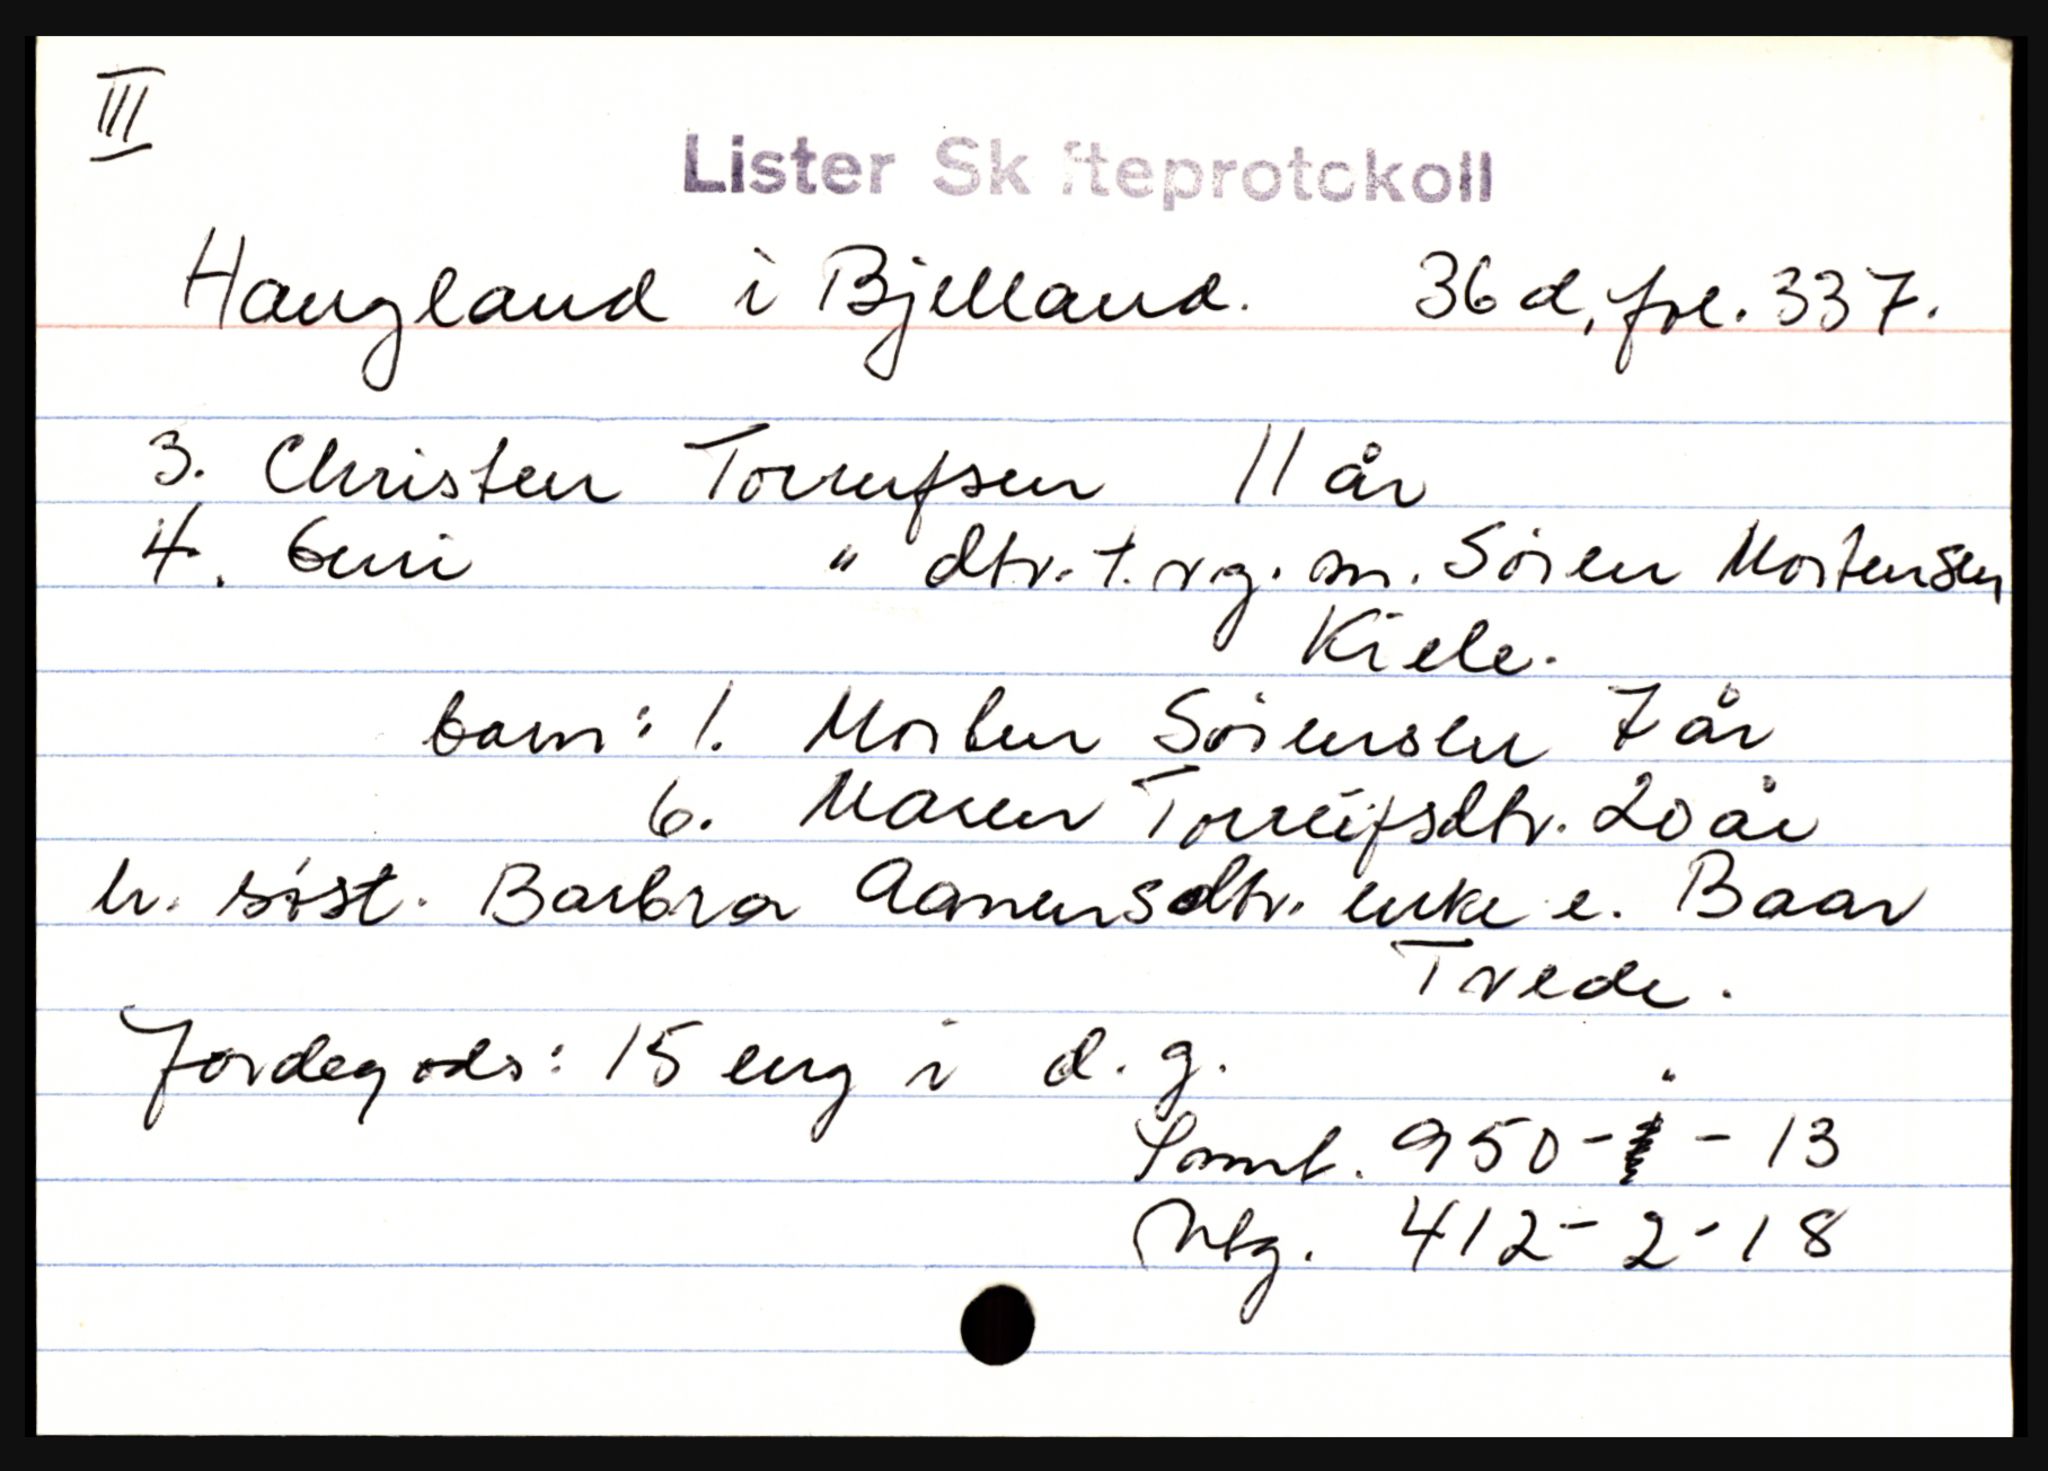 III
Lister Skifteprotokoll
Haugland i Bjelland. 36 d, fol. 337.
3. Christen Torreifsen 11 år
4. Guri " dtr. †. v g. m. Sören Mortensen
Kiele.
barn: 1. Morten Sörensen 7 år
6. Maren Torreifsdtr. 20 år
h. söst. Barbra Aanensdtr. enke e. Baar
Tvede.
Jordegods: 15 eng i d. g.
Saml. 950 - - 13
Utlg. 412 - 2 - 18